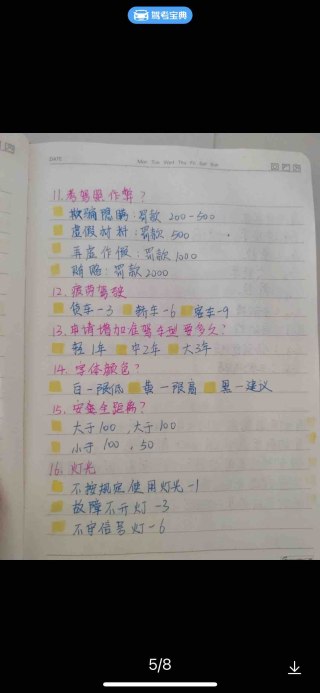 驾考宝典
DATE
Mon Tue Wed Thu Fri Sat Sun
11.考驾照作弊?
欺骗隐瞒:罚款 200-500
虚假材料:罚款 500
弄虚作假:罚款 1000
贿赂:罚款 2000
12.疲劳驾驶
货车-3 轿车-6 客车-9
13.申请增加准驾车型要多久?
轻1年 中2年 大3年
14.字体颜色?
白-限低 黄-限高 黑-建议
15.安全距离?
大于100,大于100
小于 100,50
16.灯光
不按规定使用灯光-1
故障不开灯-3
不守信号灯-6
5/8